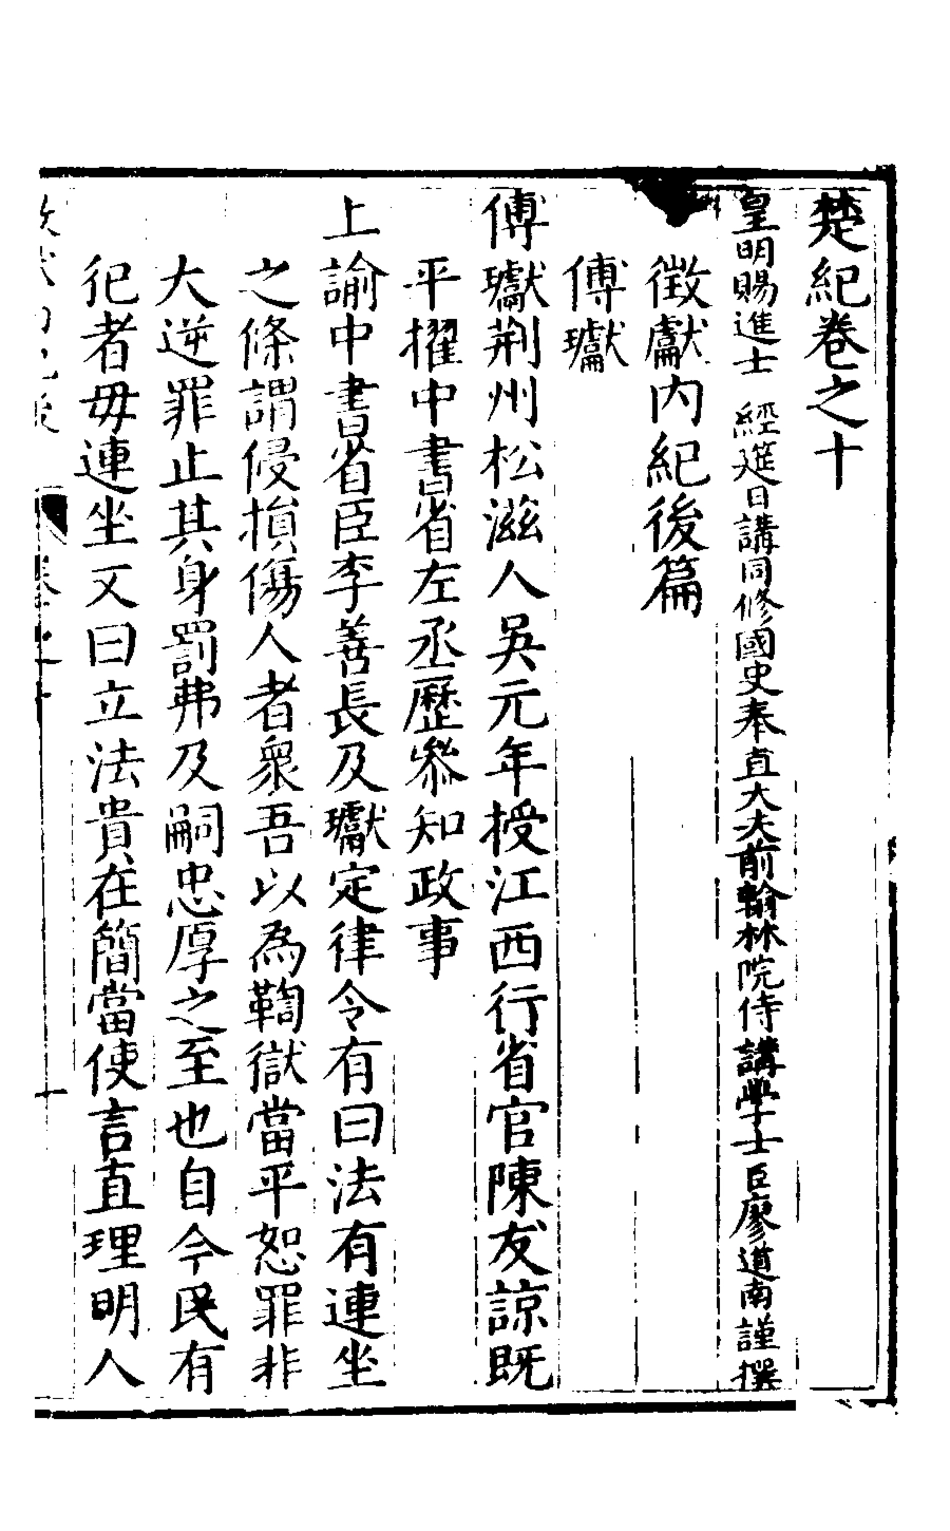 楚紀卷之十
皇明賜進士 經筵日講同修國史奉直大夫前翰林院侍講學士臣廖道南謹撰
徵獻內紀後篇
傅瓛
傅瓛荆州松滋人吳元年授江西行省官陳友諒既
平擢中書省左丞歷叅知政事
上諭中書省臣李善長及瓛定律令有曰法有連坐
之條謂侵損傷人者衆吾以為鞫獄當平恕罪非
大逆罪止其身罰弗及嗣忠厚之至也自今民有
犯者毋連坐又曰立法貴在簡當使言直理明人